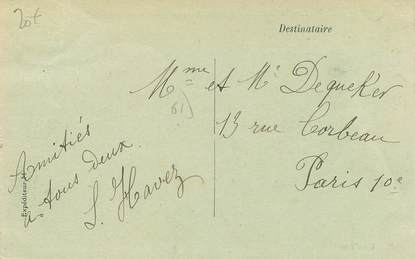 20t
Destinataire
Mme et Mr Dequeker
61)
13 rue Corbeau
Paris 10e
Amitiés
à tous deux.
L. Havez
Expéditeur